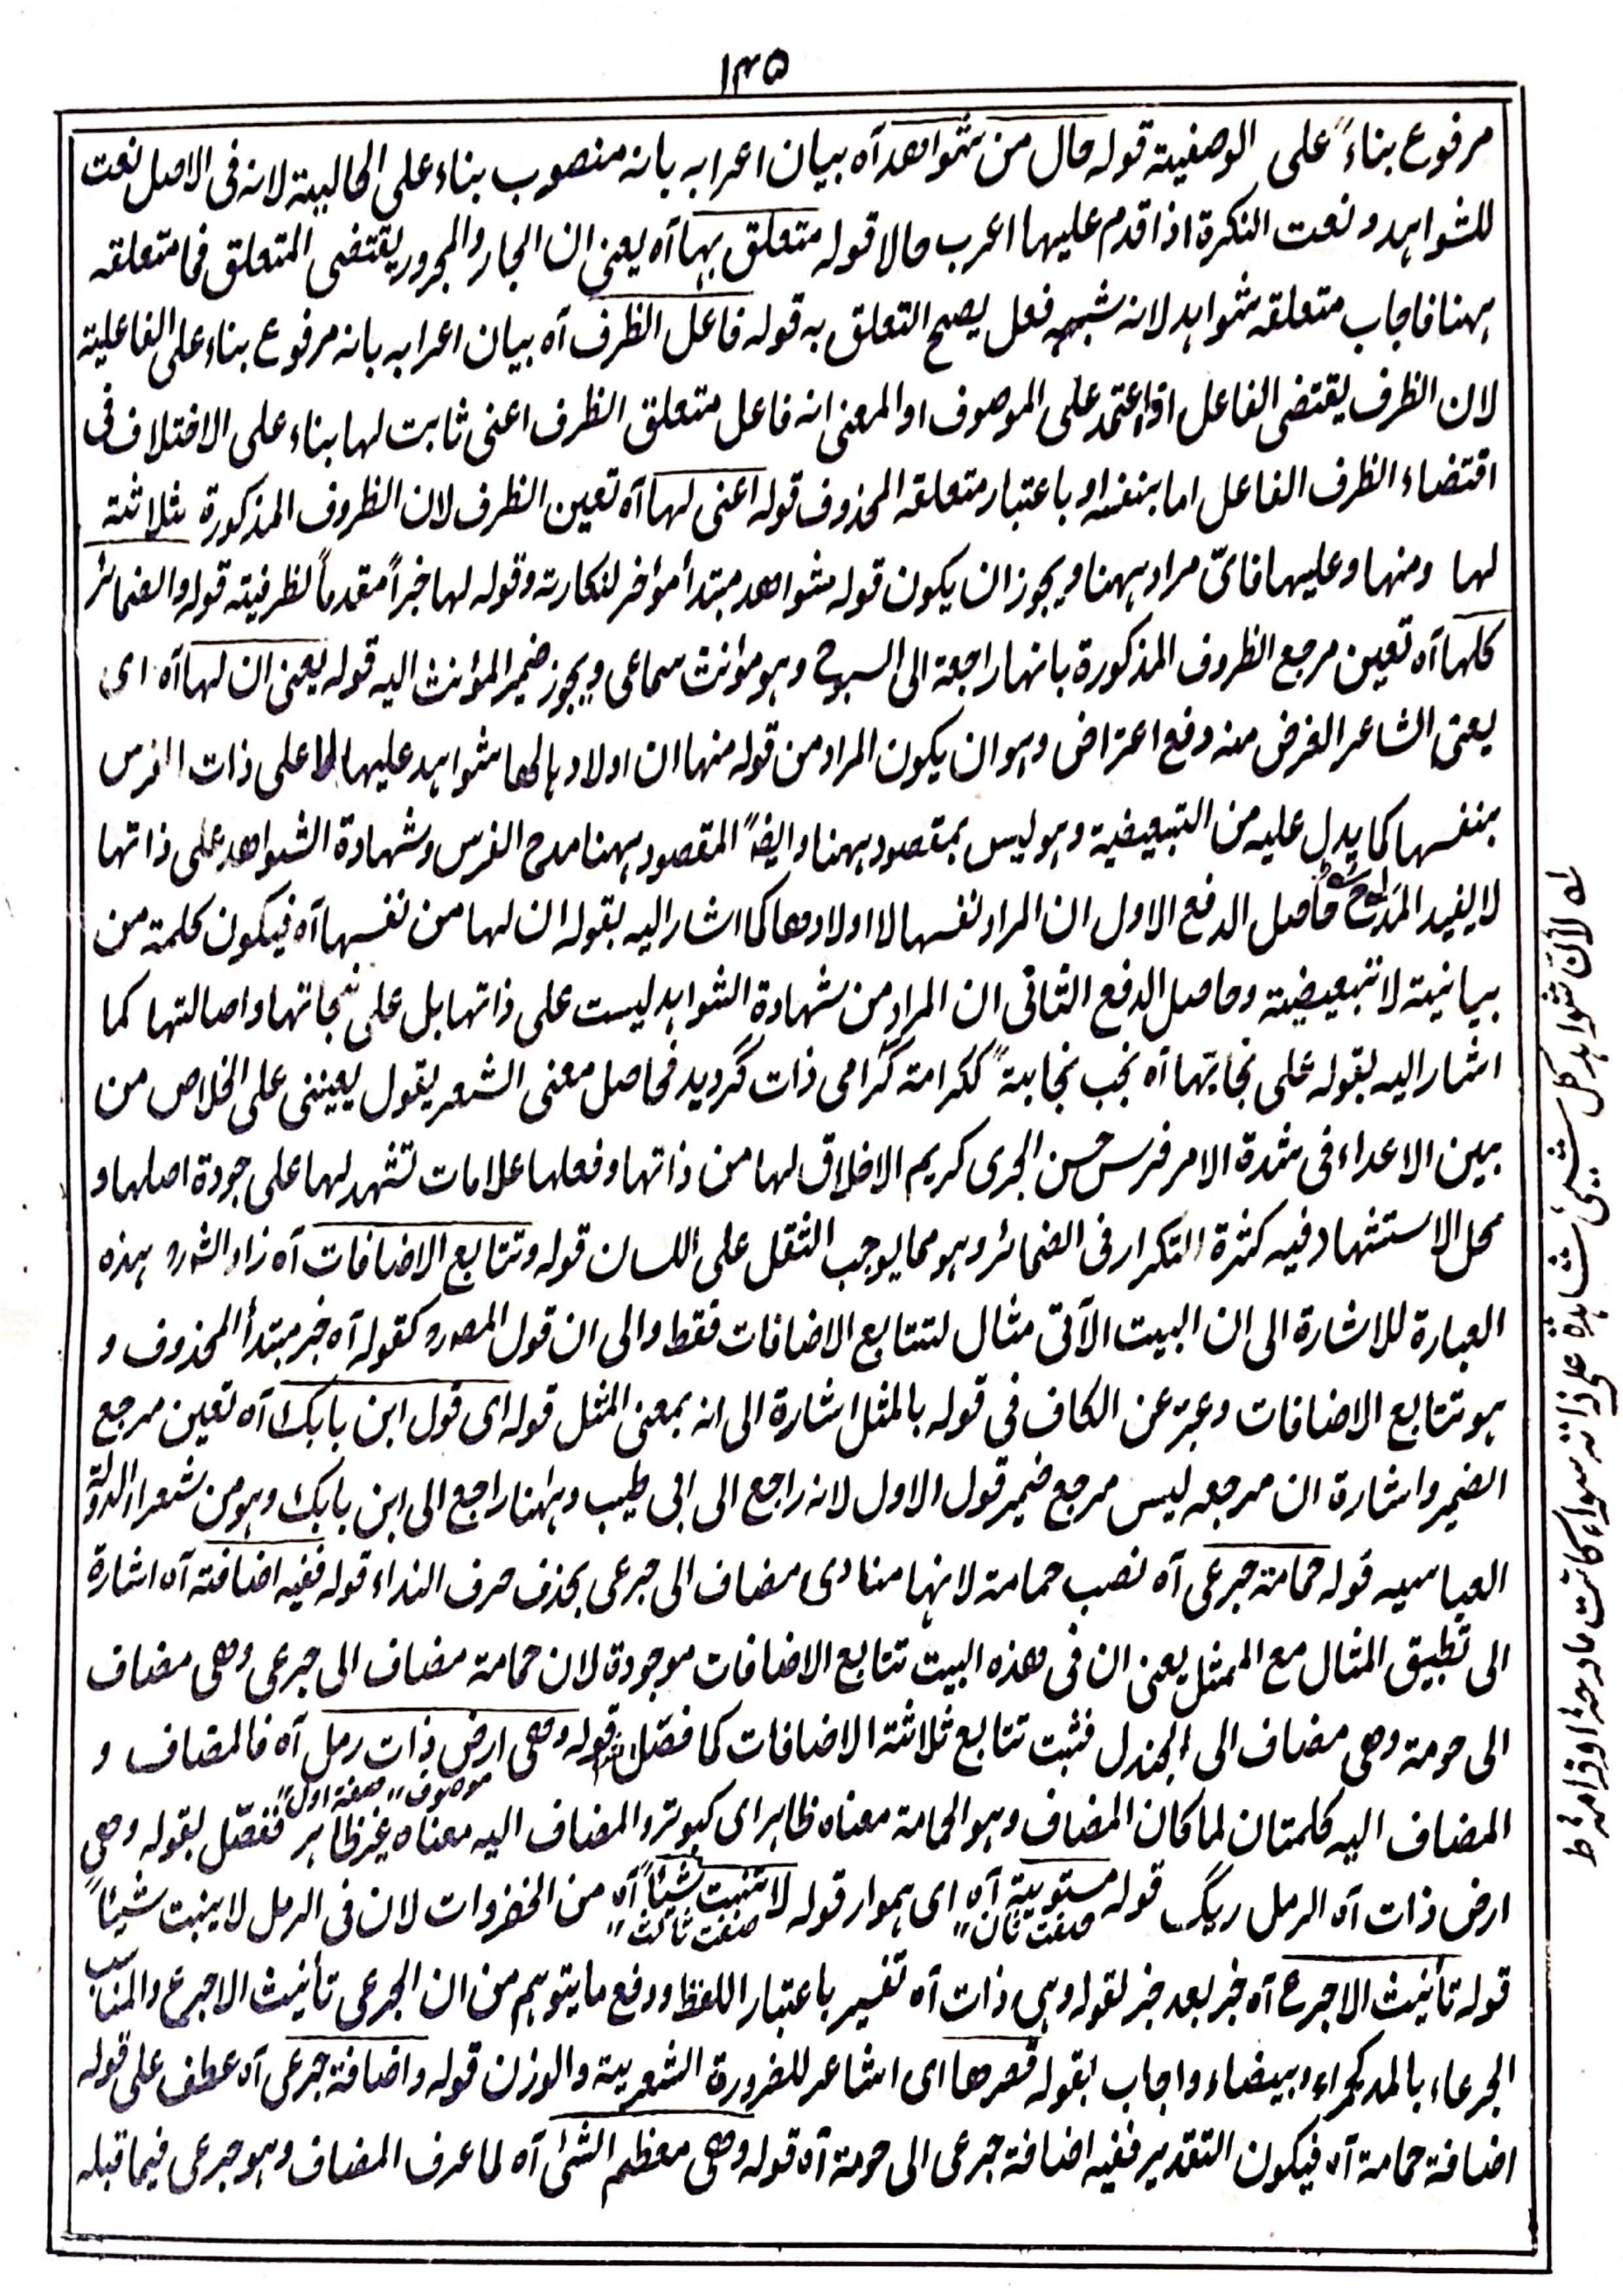 ۱۳۵
مرفوع بناءً على الوصفية قوله حال من شواهد آه بيان اعرابه بانه منصوب بناء على الحالية لانه فى الاصل نعت
للشواهد و نعت النكرة اذا قدم عليها اعرب حالا قوله متعلق بها آه يعنى ان الجار والمجرور يقتضى المتعلق فما متعلقه
ههنا فاجاب متعلقه شواهد لانه شبه فعل يصح التعلق به قوله فاعل الظرف آه بيان اعرابه بانه مرفوع بناء على الفاعلية
لان الظرف يقتضى الفاعل اذا اعتمد على الموصوف او المعنى انه فاعل متعلق الظرف اعنى ثابت لها بناء على الاختلاف فى
اقتضاء الظرف الفاعل اما بنفسه او باعتبار متعلقه المحذوف قوله اعنى لها آه تعين الظرف لان الظروف المذكورة ثلاثة
لها ومنها وعليها فاىّ مراد ههنا ويجوز ان يكون قوله شواهد مبتدأ مؤخر لنكارته وقوله لها خبراً مقدماً لظرفيته قوله والضمائر
كلها آه تعين مرجع الظروف المذكورة بانها راجعة الى السبوح وهو مؤنث سماعى ويجوز ضمير المؤنث اليه قوله يعنى ان لها آه اى
يعنى الشاعر الغرض منه دفع اعتراض وهو ان يكون المراد من قوله منها ان اولادها لها شواهد عليها اى على ذات الفرس
بنفسها كما يدل عليه من التبعيضية وهو ليس بمقصود ههنا وايضاً المقصود ههنا مدح الفرس وشهادة الشواهد على ذاتها
لا يفيد المدح حاصل الدفع الاول ان المراد نفسها لا اولادها كما اشار اليه بقوله ان لها من نفسها آه فيكون كلمة من
بيانية لا تبعيضية وحاصل الدفع الثانى ان المراد من شهادة الشواهد ليست على ذاتها بل على نجابتها واصالتها كما
اشار اليه بقوله على نجابتها آه نجب نجابةً ككرامة گرامى ذات گرديد فحاصل معنى الشعر يقول يعيننى على الخلاص من
بين الاعداء فى شدة الامر فرس حسن الجرى كريم الاخلاق لها من ذاتها وفعلها علامات تشهد لها على جودة اصلها و
محل الاستشهاد فيه كثرة التكرار فى الضمائر وهو مما يوجب الثقل على اللسان قوله وتتابع الاضافات آه زاد الشورو هذه
العبارة للاشارة الى ان البيت الآتى مثال لتتابع الاضافات فقط والى ان قول المصرو كقوله آه خبر مبتدأ المحذوف و
هو تتابع الاضافات وعبر عن الكاف فى قوله بالمثل اشارة الى انه بمعنى المثل قوله اى قول ابن بابك آه تعين مرجع
الضمير واشارة ان مرجعه ليس مرجع ضمير قول الاول لانه راجع الى ابى طيب وههنا راجع الى ابن بابك وهو من شعراء الدولة
العباسيه قوله حمامة جرعى آه نصب حمامة لانها منادى مضاف الى جرعى بحذف حرف النداء قوله ففيه اضافة آه اشارة
الى تطبيق المثال مع الممثل يعنى ان فى هذه البيت تتابع الاضافات موجودة لان حمامة مضاف الى جرعى وهى مضاف
الى حومة وهى مضاف الى الجندل فثبت تتابع ثلاثة الاضافات كما فصّل قوله وهى ارض ذات رمل آه فالمضاف و
موصوف ״ صفة اول ״
المضاف اليه كلمتان لما كان المضاف وهو الحمامة معناه ظاهر اى كبوتر و المضاف اليه معناه غير ظاهر ففصّل بقوله وهى
ارض ذات آه الرمل ريگ قوله مستوية آه اى هموار قوله لا تنبت شيئاً آه من الخضروات لان فى الرمل لا ينبت شيئاً
صفت ثان ״ صفت ثالث ״
قوله تأنيث الاجرع آه خبر بعد خبر لقوله وهى ذات آه تفسير باعتبار اللفظ و دفع ما يتوهم من ان الجرعى تأنيث الاجرع والمناسب
الجرعاء بالمد كحمراء وبيضاء واجاب بقوله قصرها اى اشاعر للضرورة الشعرية والوزن قوله واضافة جرعى آه عطف على قوله
اضافة حمامة آه فيكون التقدير ففيه اضافة جرعى الى حومة آه قوله وهى معظم الشئ آه لما عرف المضاف وهو جرعى فيما قبله
له لأن شواهد كل شيئ شاهدة على ذاته سواء كانت مادحة او ذامة ط